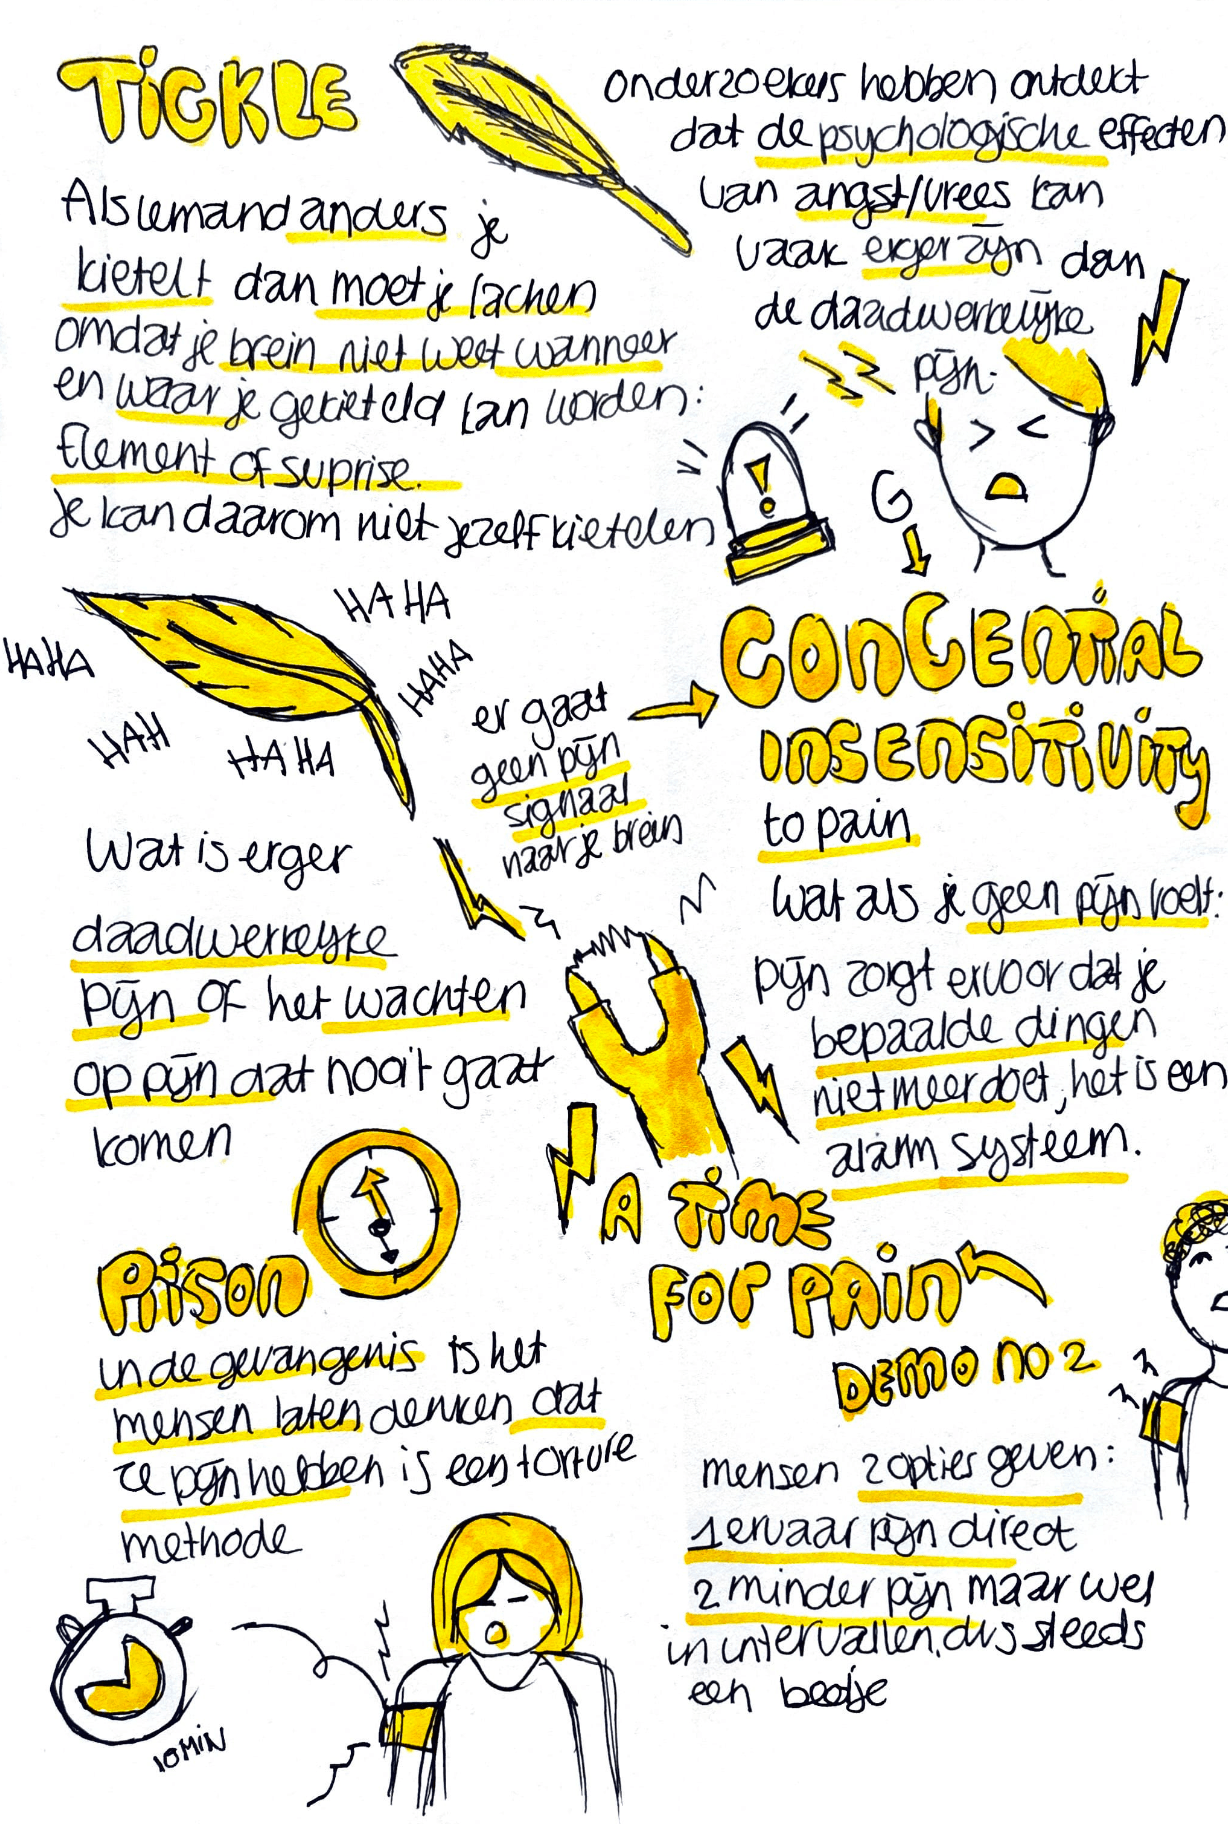 TICKLE
Als iemand anders je
kietelt dan moet je lachen
omdat je brein niet weet wanneer
en waar je gekieteld kan worden:
Element of suprise.
je kan daarom niet jezelf kietelen
onderzoekers hebben ontdekt
dat de psychologische effecten
van angst/vrees kan
vaak erger zijn dan
de daadwerkelijke
pijn.
!
G
HAHA
HAHA
HAHA
HAH
HAHA
er gaat
geen pijn
signaal
naar je brein
CONGENTIAL
INSENSITIVITY
to pain
wat als je geen pijn voelt:
pijn zorgt ervoor dat je
bepaalde dingen
niet meer doet, het is een
alarm systeem.
Wat is erger
daadwerkelijke
pijn of het wachten
op pijn dat nooit gaat
komen
PRISON
in de gevangenis is het
mensen laten denken dat
ze pijn hebben is een torture
methode
10 MIN
A TIME
FOR PAIN
DEMO NO 2
mensen 2 opties geven:
1 ervaar pijn direct
2 minder pijn maar wel
in intervallen, dus steeds
een beetje